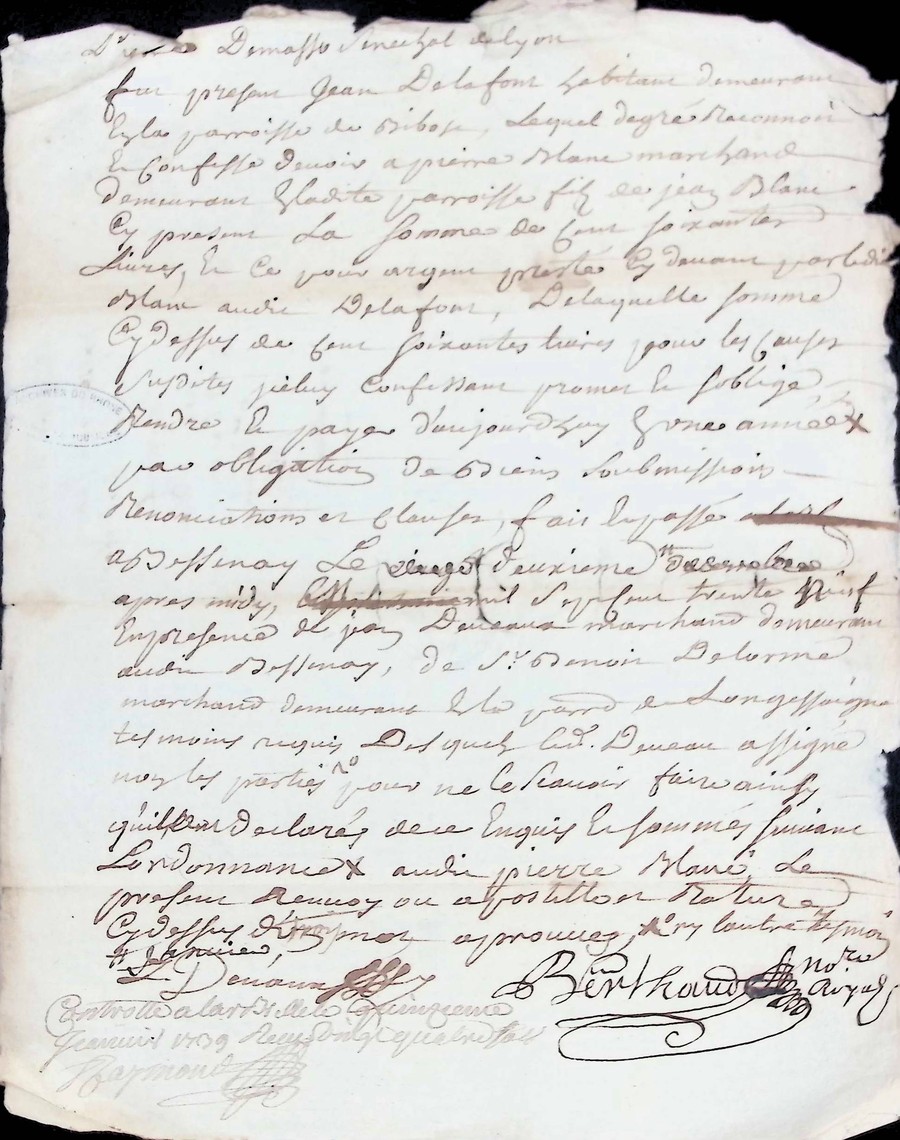 Demasso Senechal de lyon
fut present Jean Delafont habitant demeurant
En la parroisse de Bibost, Lequel de gré Reconnoit
Et Confesse devoir a pierre Blanc marchand
demeurant En ladite parroisse fils de jean Blanc
Cy present La somme de Cent soixantes
Livres, Et Ce pour argent presté Cy devant par ledit
Blanc audit Delafont, De laquelle somme
Cy dessus de Cent soixantes livres pour les Causes
susdites jceluy Confessant promet Et soblige
Rendre Et payer d'aujourdhuy En une année x
par obligation de Biens soubmissions
Renonciations et Clauses, fait Et passé
a Bessenay Le deuxieme
apres midy, mil sept cent trente Neuf
En presence de jean Deveaux marchand demeurant
audit Bessenay, de Sr. Benoit Delorme
marchand demeurant En la parroisse de Longessaigne
tesmoins requis Desquels led. Deveau a signé
non les parties pour ne le scavoir faire ainsy
qu'ils ont declarés de ce Enquis Et sommés suivant
Lordonnance x audit pierre Blanc, Le
present Renvoy ou apostille et Rature
Cy dessus mot aprouvez, ny l'autre tesmoin
# Janvier,
Devaux
Berthaud nore Royal
Controllé a larbresle le quinzieme
Jeanvier 1739 Receu vingt quatre sols
Raymond
ARCHIVES DU RHONE